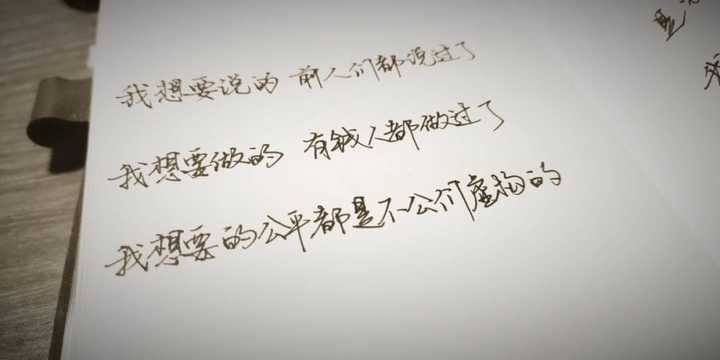 我想要说的 前人们都说过了
我想要做的 有钱人都做过了
我想要的公平都是不公们虚构的
是